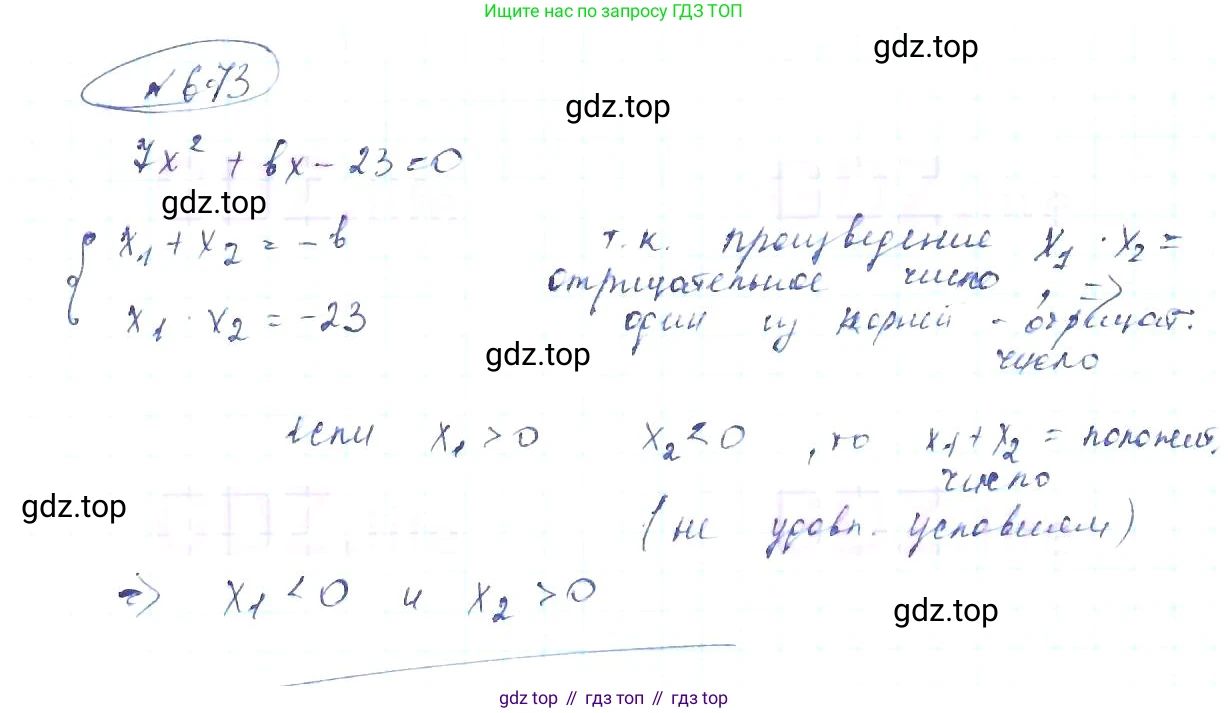 Ищите нас по запросу ГДЗ ТОП
gdz.top
№ 6.73
gdz.top
7x² + bx - 23 = 0
gdz.top
x₁ + x₂ = - b
x₁ · x₂ = -23
т.к. произведение x₁ · x₂ =
отрицательное число, =>
один из корней - отрицат.
число
gdz.top
если x₁ > 0 x₂ < 0, то x₁ + x₂ = положит.
число
gdz.top
(не удовл. условиям)
=> x₁ < 0 и x₂ > 0
gdz.top
gdz top // гдз топ // гдз top